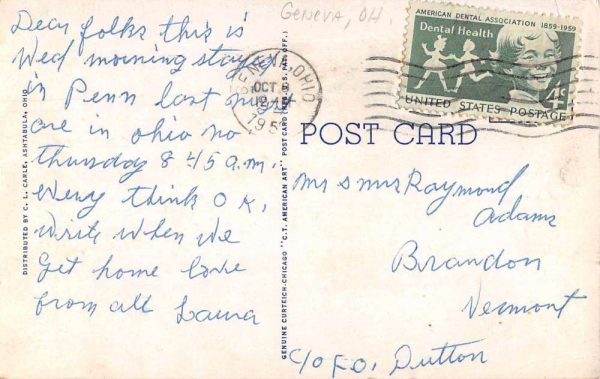 Dear folks this is
Wed morning stayed
in Penn last night
are in ohio no
thursday 8 45 a.m.
Every think O K,
Write when we
get home love
from all Laura
DISTRIBUTED BY C. L. CARLE, ASHTABULA, OHIO
GENUINE CURTEICH-CHICAGO "C.T. AMERICAN ART" POST CARD (REG. U.S. PAT. OFF.)
GENEVA, OH.
OHIO
OCT
AMERICAN DENTAL ASSOCIATION 1859-1959
Dental Health
4¢
UNITED STATES POSTAGE
POST CARD
Mr s mrs Raymond
Adams
Brandon
Vermont
c/o F.O. Dutton